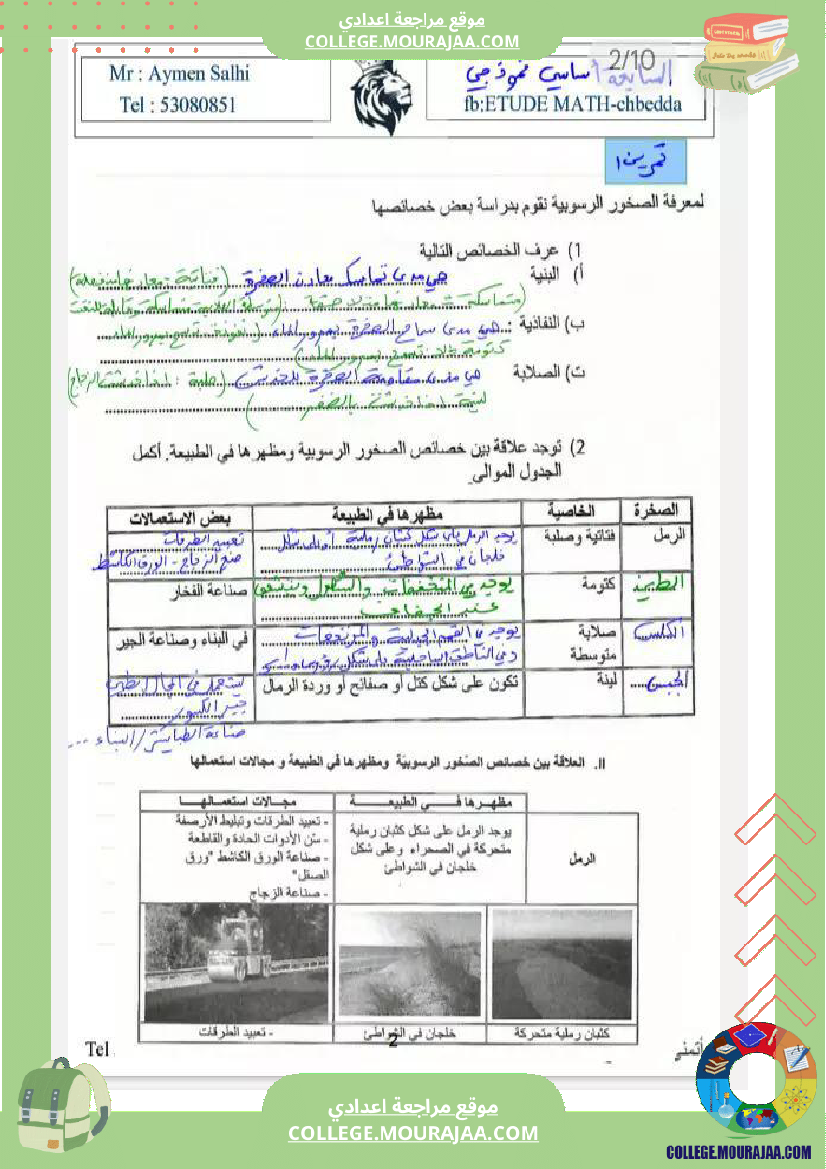 موقع مراجعة اعدادي
COLLEGE.MOURAJAA.COM
2/10
Mr : Aymen Salhi
Tel : 53080851
السابعة أساسي نموذجي
fb:ETUDE MATH-chbedda
تمرين 1
لمعرفة الصخور الرسوبية نقوم بدراسة بعض خصائصها
1) عرف الخصائص التالية
أ) البنية هي مدى تماسك معادن الصخرة
ب) النفاذية : هي مدى سماح الصخرة بمرور الماء
ت) الصلابة هي مدى مقاومة الصخرة للخدش
2) توجد علاقة بين خصائص الصخور الرسوبية ومظهرها في الطبيعة. أكمل
الجدول الموالي
الصخرة الخاصية مظهرها في الطبيعة بعض الاستعمالات
الرمل فتاتية وصلبة يوجد الرمل على شكل كثبان رملية تعبيد الطرقات
خلجان في الشواطئ صنع الزجاج - الورق الكاشط
الطين كتومة يوجد في المنخفضات والسهول صناعة الفخار
الكلس صلابة يوجد في القمم الجبلية والمرتفعات في البناء وصناعة الجير
متوسطة
الجبس لينة تكون على شكل كتل أو صفائح أو وردة الرمال يستعمل في المجال الطبي
جبر الكسور
صناعة الطباشير / البناء ...
II. العلاقة بين خصائص الصخور الرسوبية ومظهرها في الطبيعة و مجالات استعمالها
مظهرها في الطبيعة مجالات استعمالها
الرمل
يوجد الرمل على شكل كثبان رملية
متحركة في الصحراء وعلى شكل
خلجان في الشواطئ
- تعبيد الطرقات وتبليط الأرصفة
- سن الأدوات الحادة والقاطعة
- صناعة الورق الكاشط "ورق
الصقل"
- صناعة الزجاج
كثبان رملية متحركة خلجان في الشواطئ - تعبيد الطرقات
2
Tel
أتمنى
موقع مراجعة اعدادي
COLLEGE.MOURAJAA.COM
COLLEGE.MOURAJAA.COM